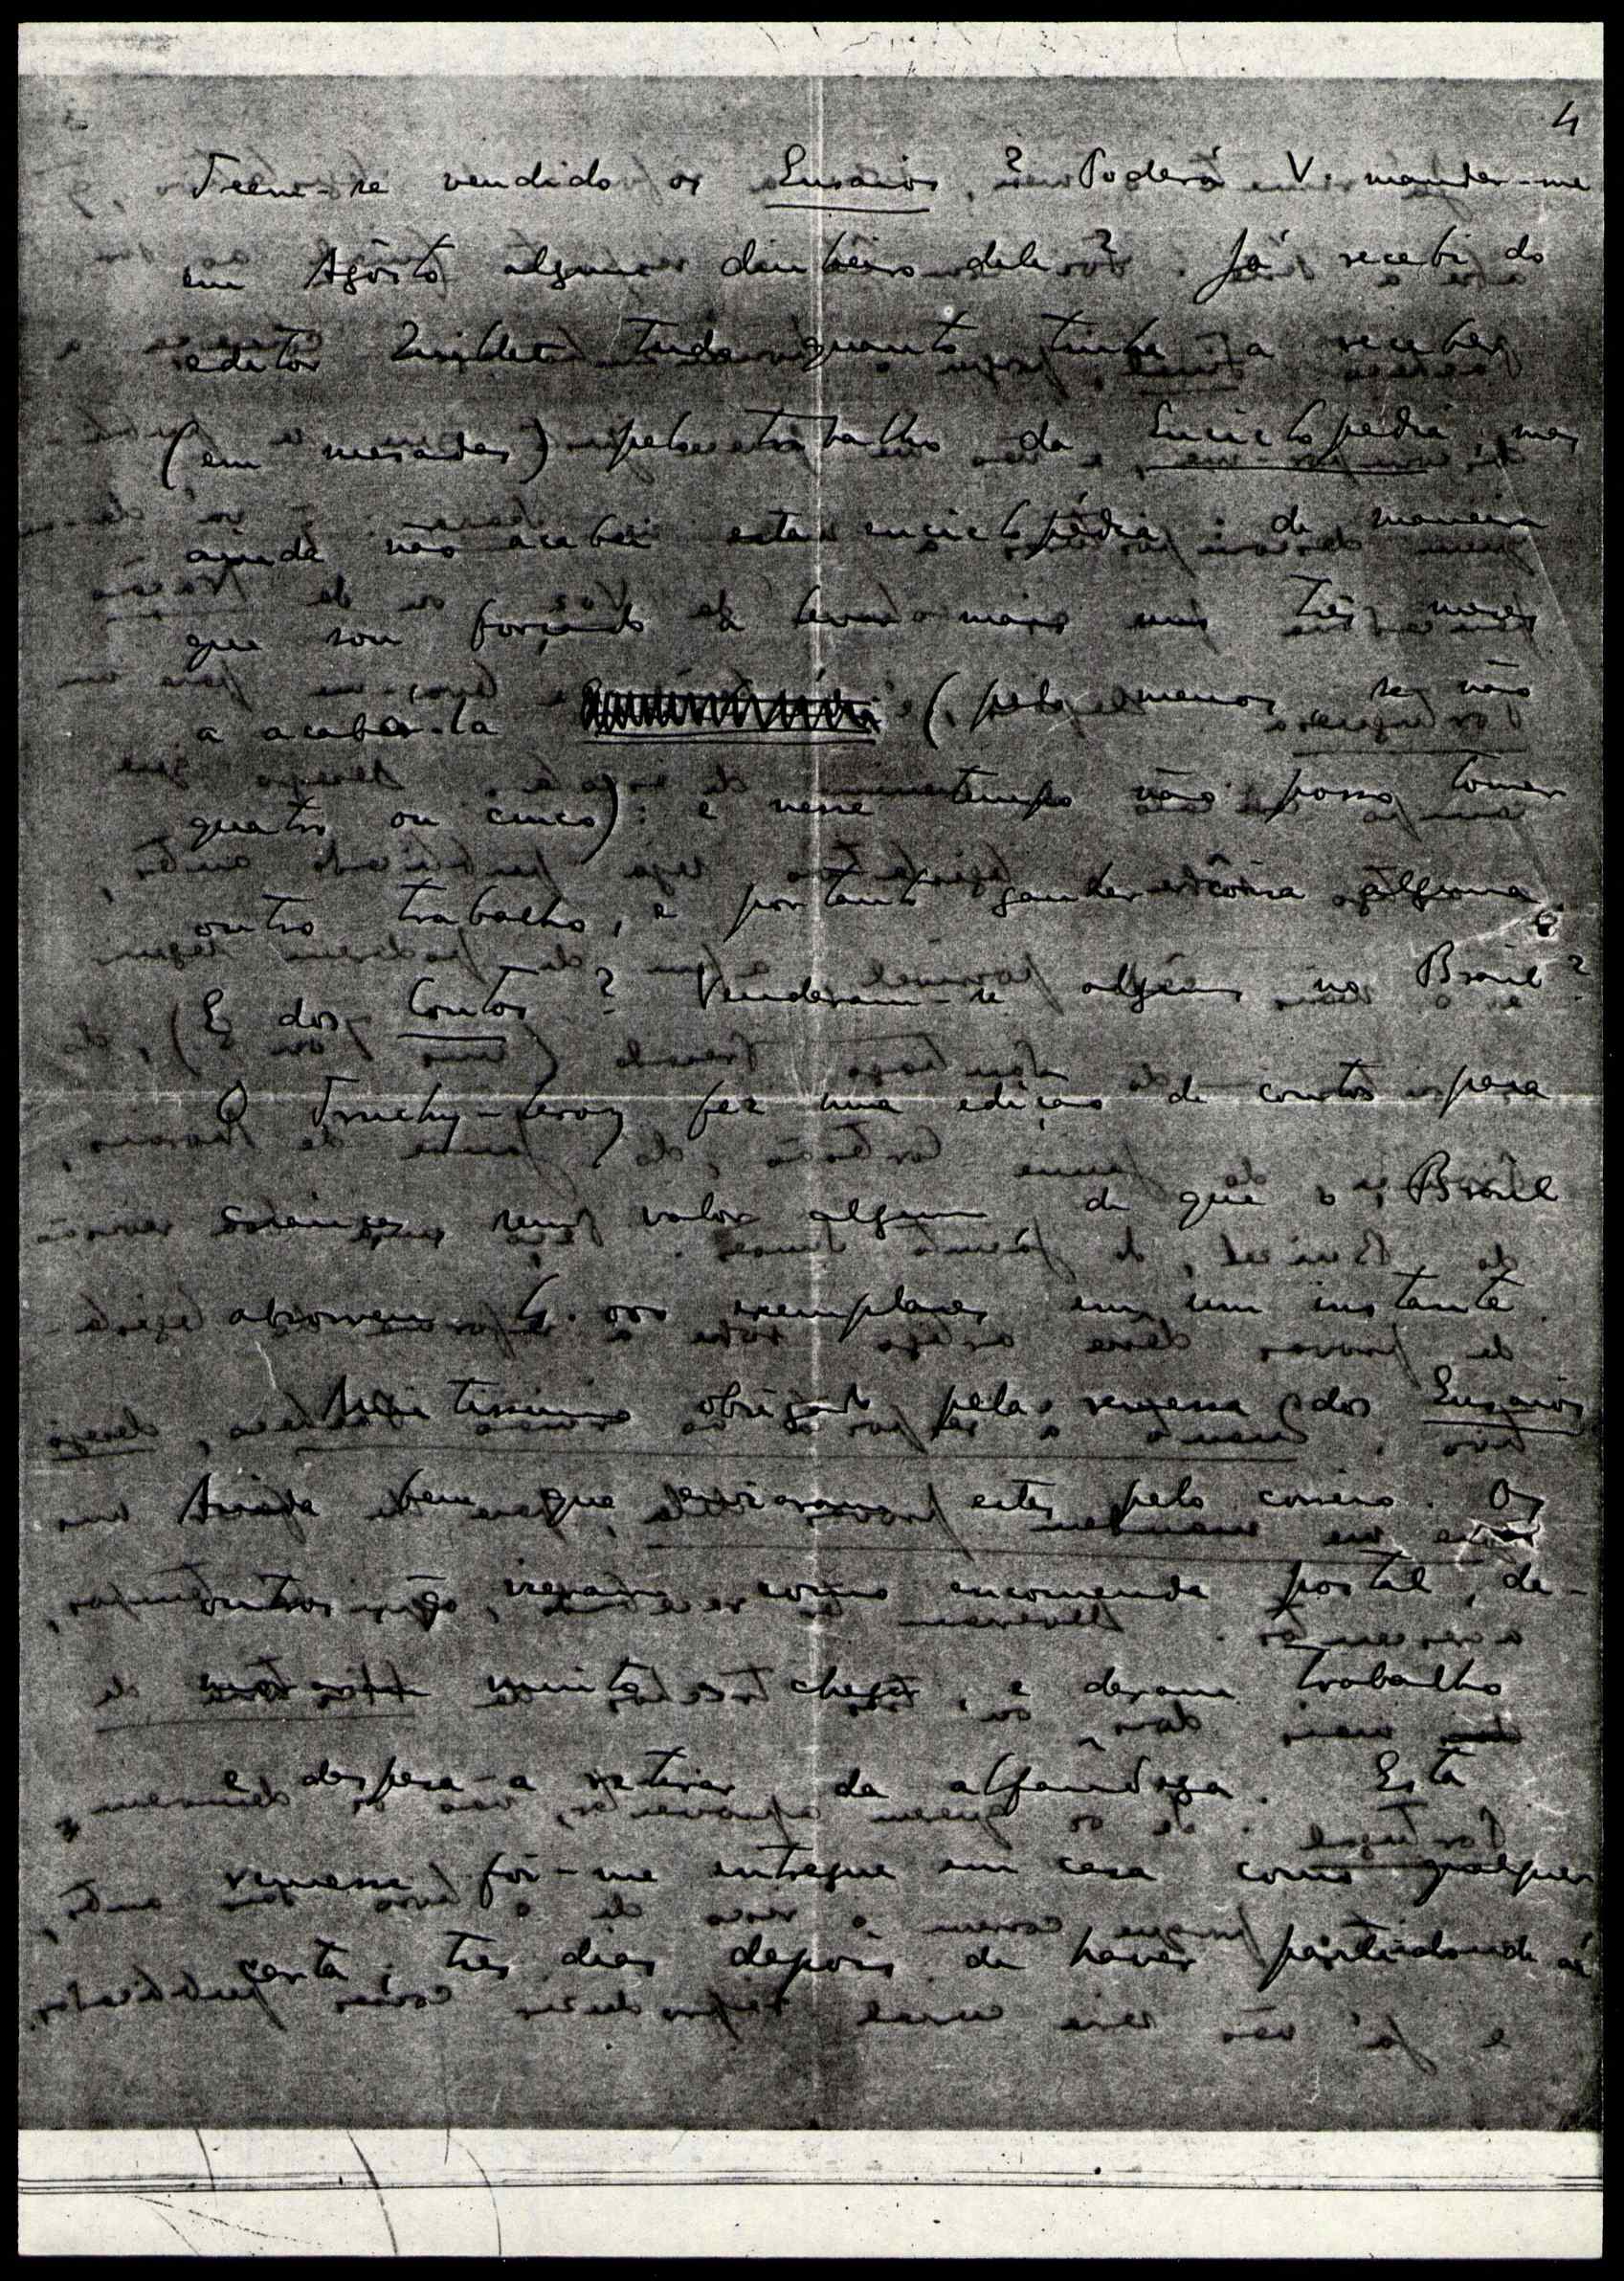 4
Teem-se vendido os Ensaios? Poderá V. mandar-me
em Agôsto algum dinheiro dele? Já recebi do
editor tudo quanto tinha a receber
(em mesadas) pelo trabalho da Enciclopédia, mas
ainda não acabei esta enciclopédia; de maneira
que sou forçado a levar mais uns três meses
a acabá-la (pelo menos, se não
quatro ou cinco): e nesse tempo não posso tomar
outro trabalho, e portanto ganhar coisa alguma.
(E dos Contos? Venderam-se alguns no Brasil?
O Truchy-Leroy fez uma edição de contos para
crianças, sem valor algum, de que o Brasil
absorveu 4.000 exemplares em um instante.
Muitíssimo obrigado pela remessa dos Ensaios
Ainda bem que enviaram estes pelo correio. Os
outros vieram como encomenda postal, de-
muito a chegar, e deram trabalho
e despesa a retirar da alfândega. Esta
remessa foi-me entregue em casa como qualquer
carta, tres dias depois de haver partido de aí